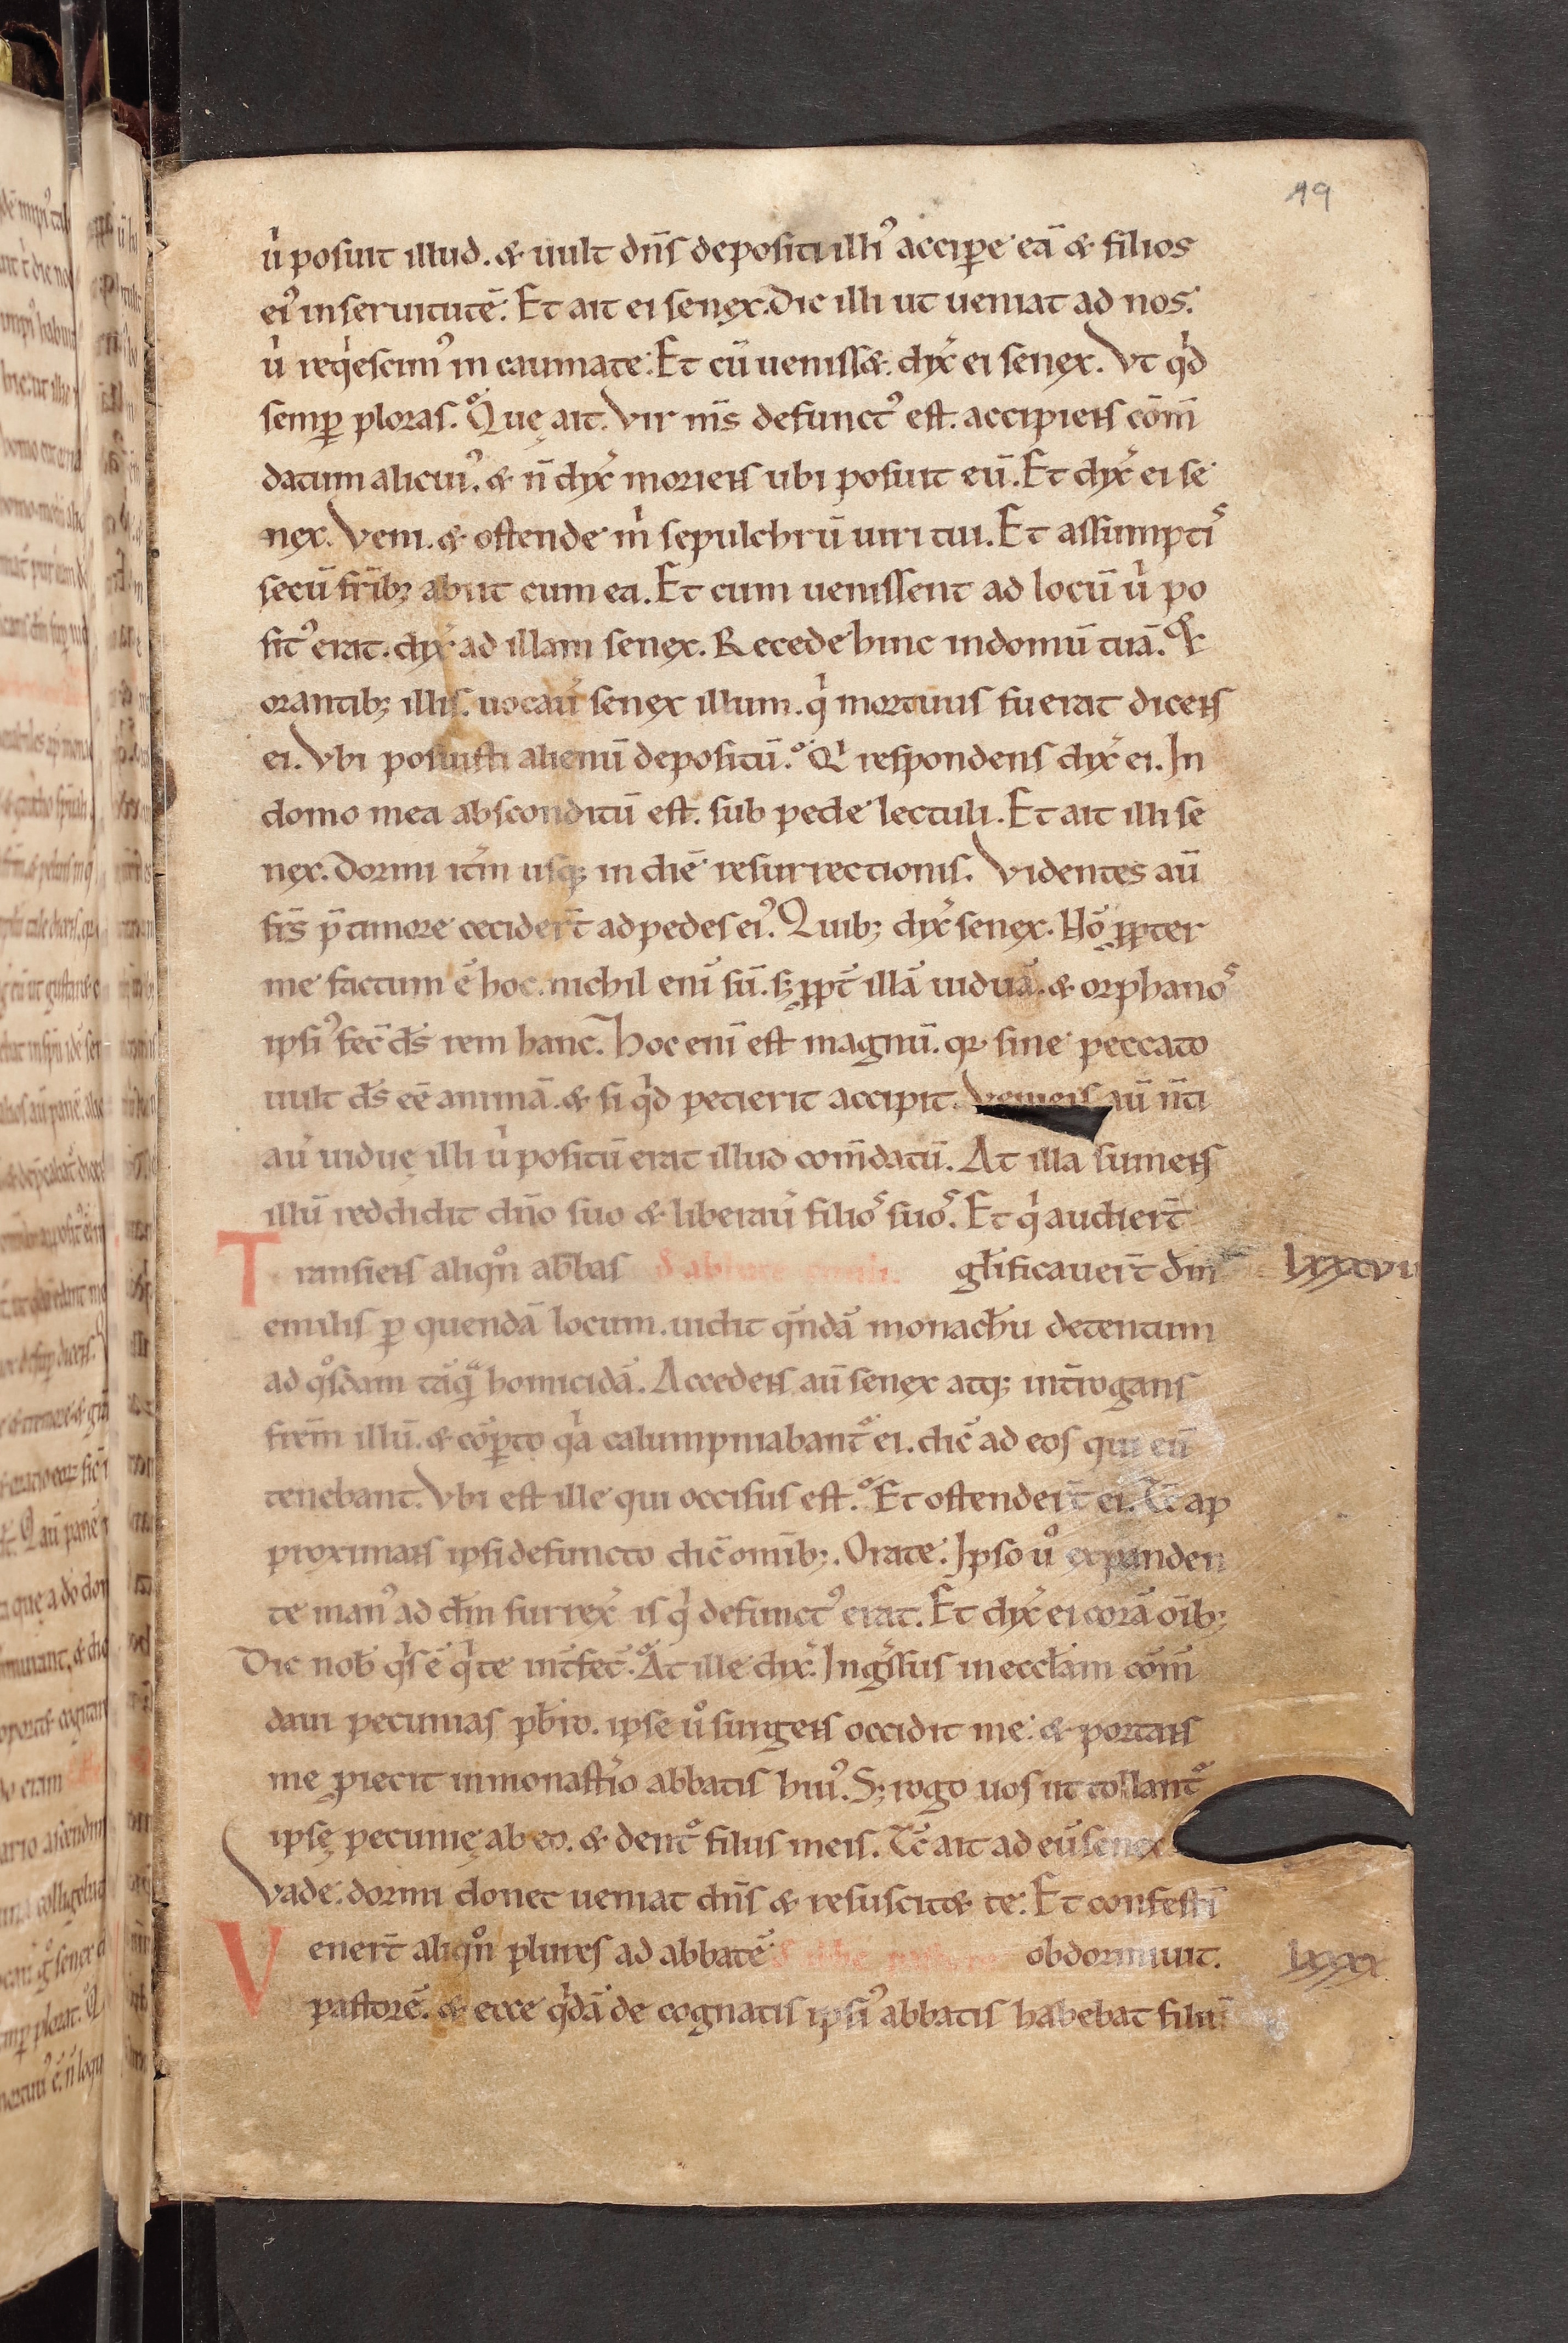 19
u͛ posuit illud. & uult dn̄s depositi illiꝰ accip̲e eā & filios
eiꝰ in seruitutē. Et ait ei senex. Dic illi ut ueniat ad nos.
u͛ req͛escimꝰ in caumate. Et cū uenisset. dix̾ ei senex. Vt q͛d
semp̲ ploras. Que ait. Vir m̄s defunctꝰ est. accipiens cōm̄
datum alicuiꝰ. & n̄ dix̾ moriens ubi posuit eū. Et dix̾ ei se
nex. Veni. & ostende m͛ sepulchrū uiri tui. Et assumptis
secū fr̄ibꝫ abiit cum ea. Et cum uenissent ad locū u͛ po
sitꝰ erat. dix̾ ad illam senex. Recede hinc in domū tuā. Et
orantibꝫ illis. uocau͛ senex illum. q͛ mortuus fuerat dicens
ei. Vbi posuisti alienū depositū. Q͛ respondens dix̾ ei. In
domo mea absconditū est. sub pede lectuli. Et ait illi se
nex. Dormi it̾m usqꝫ in diē resurrectionis. Videntes aū
fr̄s p̄ timore cecider̄t ad pedes eiꝰ. Quibꝫ dix̾ senex. Nō ꝓpter
me factum ē hoc. nichil eni̅ sū. sꝫ ꝓpt̄ illā uiduā. & orphanos
ipsiꝰ fec̄ ds̄ rem hanc. Hoc eni̅ est magnū. qꝛ sine peccato
uult ds̄ eē animā. & si q͛d petierit accipit. Veniens aū n̄ti
au͛ uidue illi u͛ positū erat illud com̄datū. At illa sumens
illū reddidit dn̄o suo & liberau͛ filios suos. Et q͛ audiert̄
Transiens aliqn̊ abbas glīficauert̄ dm̄ lxxxvii
emilis p̲ quendā locum. uidit qn̄dā monachū detentum
ad qͦsdam tāqᵃ homicidā. Accedens aū senex atqꝫ int̄rogans
frēm illū. & cōp̲to qͥa calumpniabant̄ ei. dic̄ ad eos qui eū
tenebant. Vbi est ille qui occisus est. Et ostendert̄ ei. Tc̄ ap
proximans ipsi defuncto dic̄ om̄ibꝫ. Orate. Ipso uͦ expanden
te manꝰ ad dm̄ surrex̾ is q͛ defunctꝰ erat. Et dix̾ ei corā oīb;
Dic nob̄ q͛s ē q͛ te int̄fec̄. At ille dix̾. Ingͥssus in eccl̄am cōm̄
daui pecunias pb̄ro. ipse uͦ surgens occidit me. & portans
me ꝓiecit in monast͛io abbatis huiꝰ. Sꝫ rogo uos ut tollant̄
ipse pecunie ab eo. & dent̄ filiis meis. Tc̄ ait ad eū senex
Vade. dormi donec ueniat dn̄s & resuscitet te. Et confestī
Venert̄ aliqn̊ plures ad abbatē obdormiuit. lxxxx
pastorē. & ecce q͛dā de cognatis ipsiꝰ abbatis habebat filiū